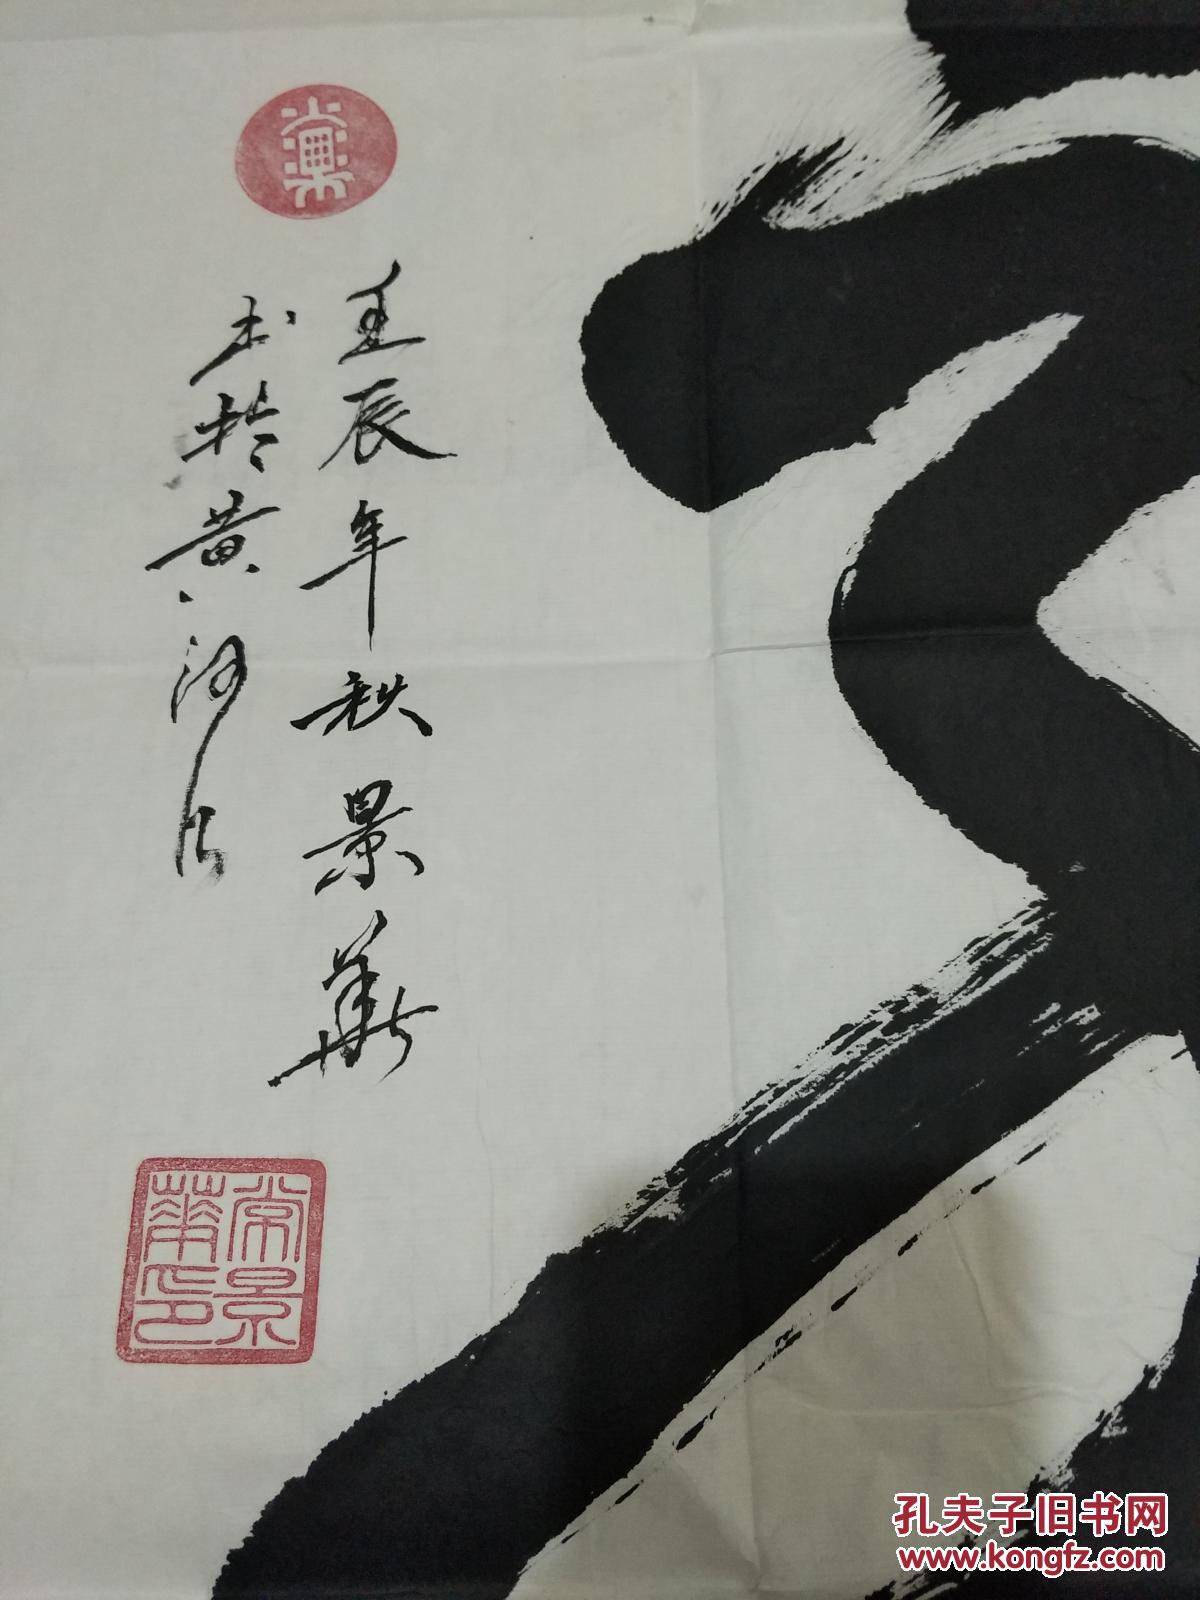 壬辰年秋景華
书於黄河
常景
華印
孔夫子旧书网
www.kongfz.com